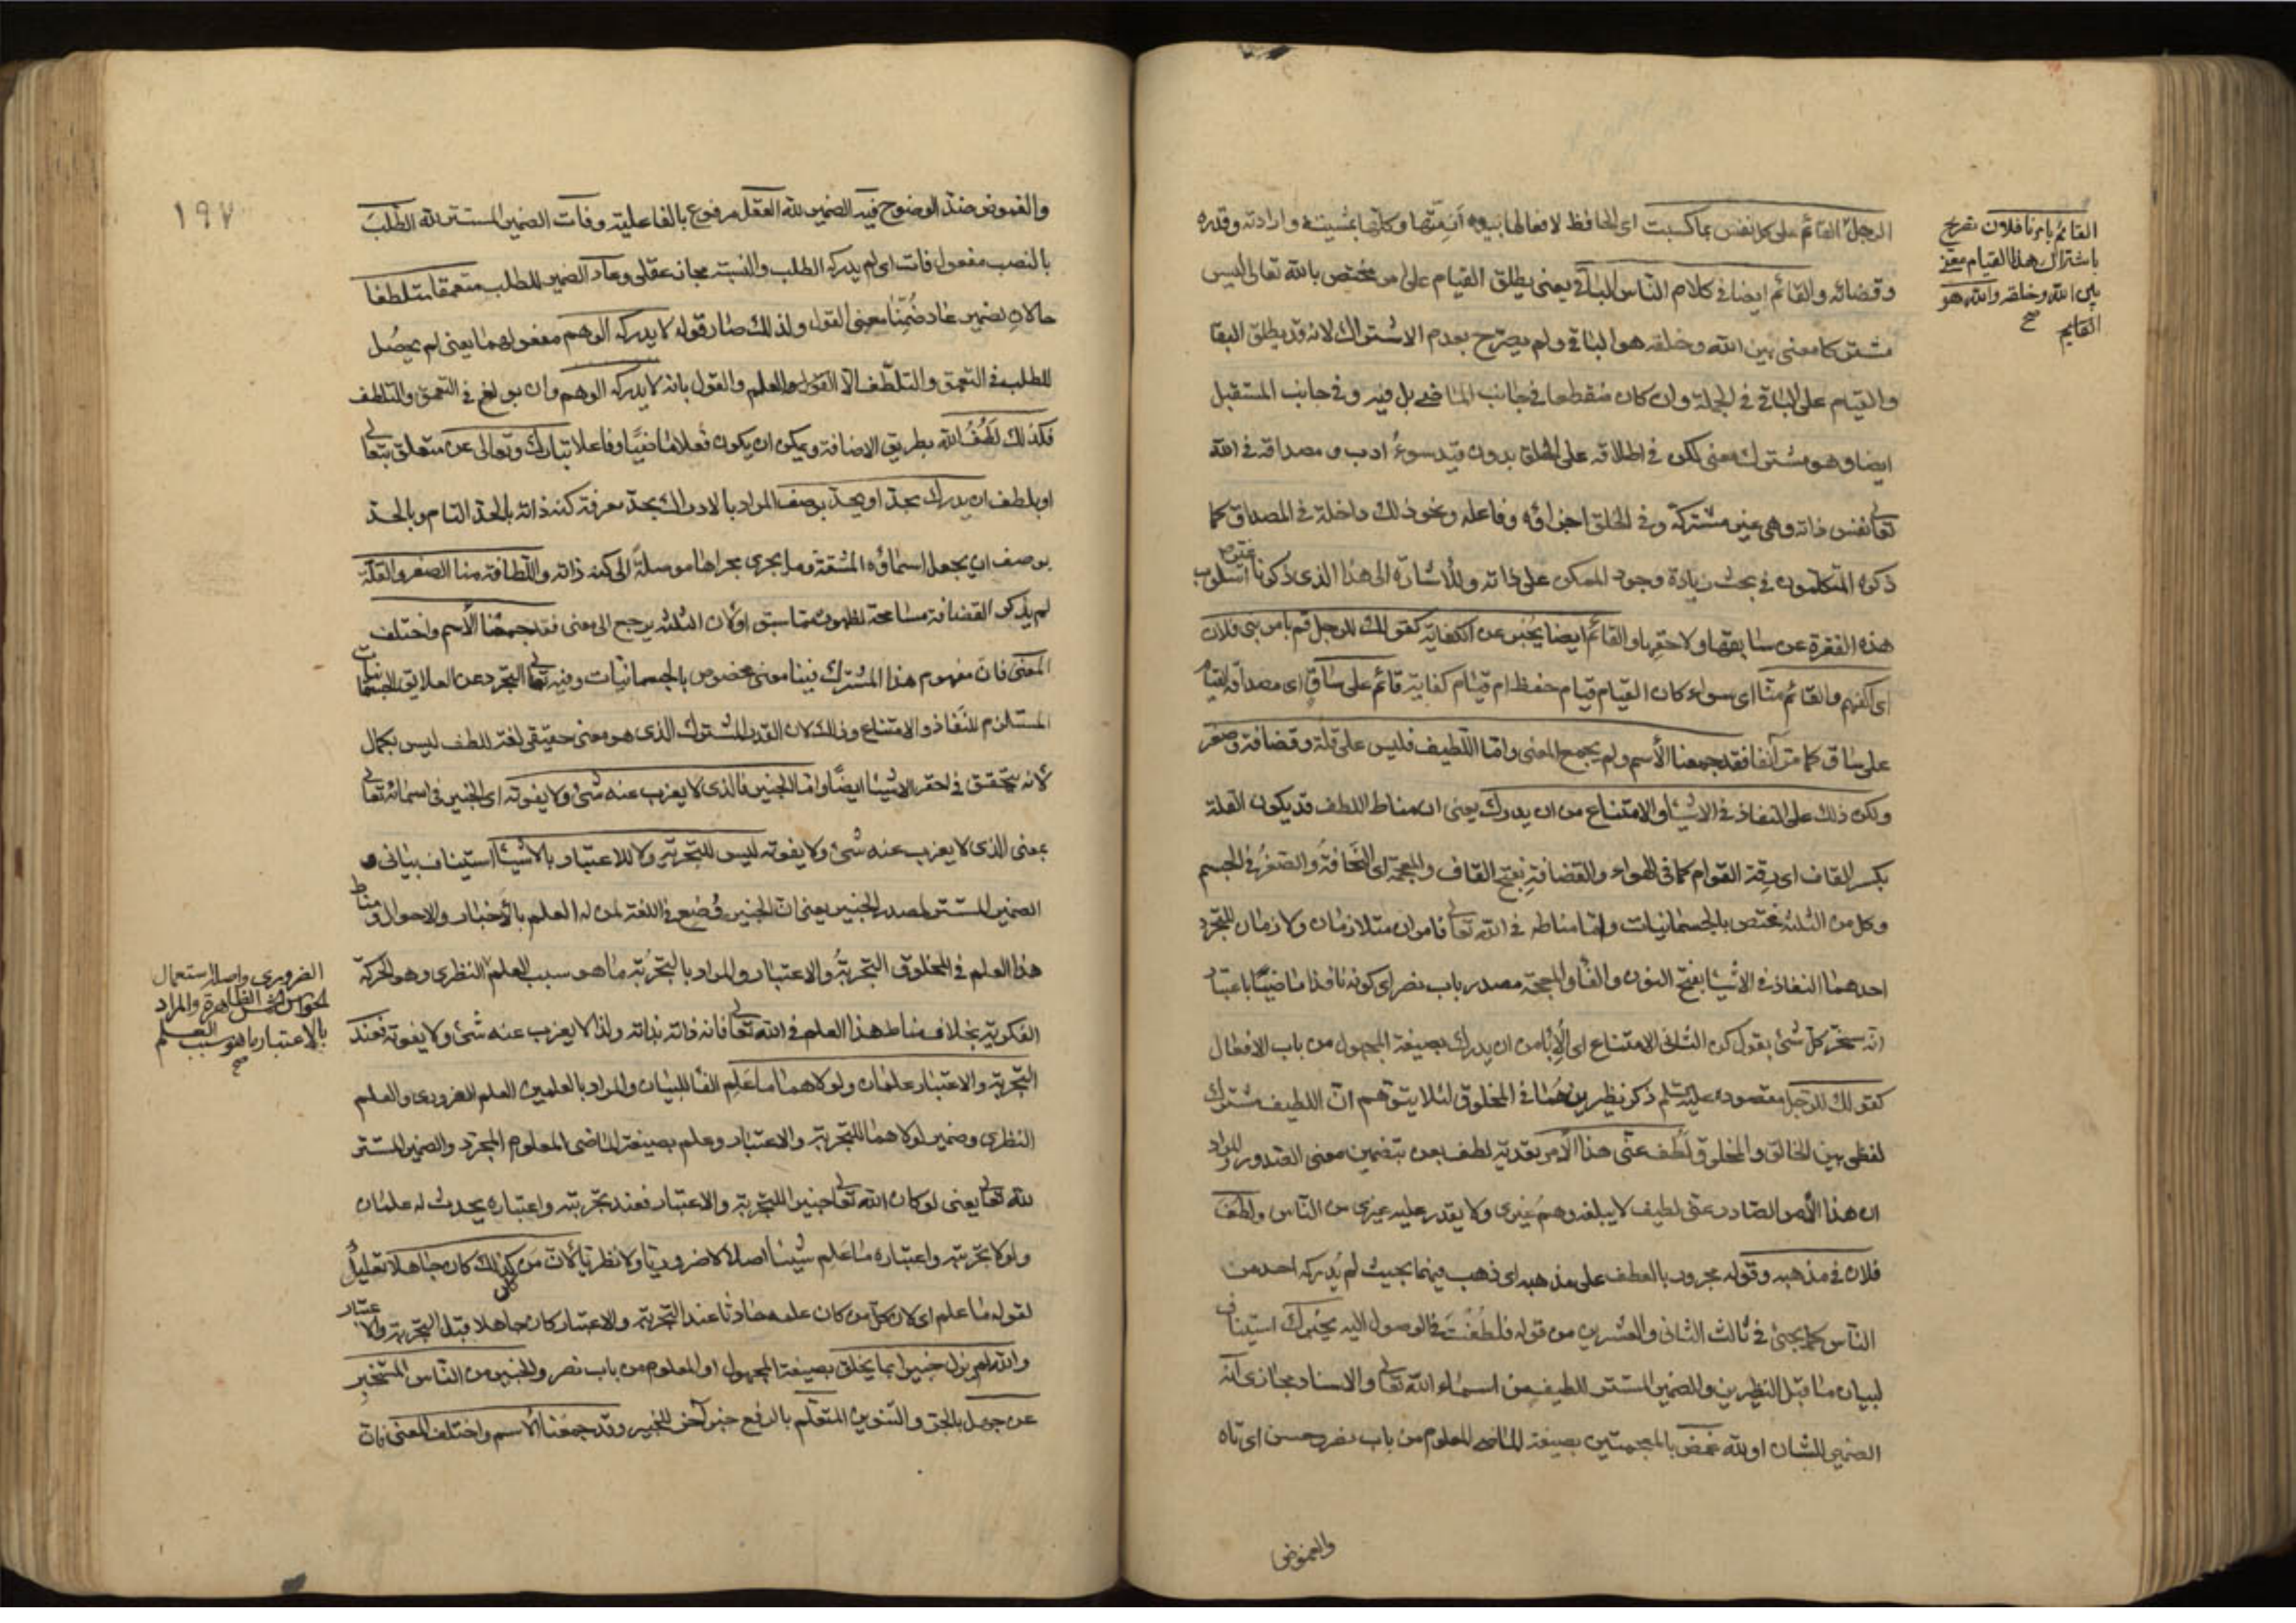 الرجل القائم على كل نفس بما كسبت اى الحافظ لافعالها بيده ازمتها وكلها بمشيته وارادته وقدره
وقضائه والقائم ايضا فى كلام الناس الباقى يعنى يطلق القيام على امر مختص بالله تعالى ليس
مشتركا معنى بين الله وخلقه هو الباقى ولم يصرح بعدم الاشتراك لانه قد يطلق البقا
والقيام على الباقى فى الجملة وان كان منقطعا فى جانب الماضى بل فيه وفى جانب المستقبل
ايضا وهو مشترك معنى لكن فى اطلاقه على الخلق بدون قيد سوء ادب ومصداقه فى الله
تعالى نفس ذاته وهى غير مشتركة وفى الخلق اجزاؤه وفاعله ونحو ذلك داخلة فى المصداق كما
ذكره المتكلمون فى بحث زيادة وجود الممكن على ذاته وللاشارة الى هذا الذى ذكرنا غير اسلوب
هذه الفقرة عن سابقها ولاحقها والقائم ايضا يخبر عن الكفاية كقولك للرجل قم بامر بنى فلان
اى اكفهم والقائم منا اى سواء كان القيام قيام حفظ ام قيام كفاية قائم على ساق اى مصداقه القيام
على ساق كما مر آنفا فقد جمعنا الأسم ولم يجمع المعنى واما اللطيف فليس على قلة وقضافة وصغر
ولكن ذلك على النفاذ فى الاشياء والامتناع من ان يدرك يعنى ان مناط اللطف قد يكون القلة
بكسر القاف اى رقة القوام كما فى الهواء والقضافة بفتح القاف والمعجمة اى النحافة والصغر فى الجسم
وكل من الثلثة مختص بالجسمانيات واما مناطه فى الله تعالى فامران متلازمان ولازمان للتجرد
احدهما النفاذ فى الاشيا بفتح النون والفا والمعجمة مصدر باب نصر اى كونه نافذا ماضيا باعتبار
انه سخر كل شئ بقول كن الثانى الامتناع اى الإبا من ان يدرك بصيغة المجهول من باب الافعال
كقولك للرجل مقصوده عليه السلم ذكر نظيرين هما فى المخلوق لئلا يتوهم ان اللطيف مشترك
لفظى بين الخالق والمخلوق لطف عنى هذا الأمر تعدية لطف بعن بتضمين معنى الصدور والمراد
ان هذا الأمر الصادر عنى لطيف لا يبلغه وهم غيرى ولا يقدر عليه غيرى من الناس ولطف
فلان فى مذهبه وقوله مجرور بالعطف على مذهبه اى ذهب فيهما بحيث لم يدركه احد من
الناس كما يجئ فى ثالث الثانى والعشرين من قوله فلطفت فى الوصول اليه يخبرك استيناف
لبيان ما قبل النظيرين والضمير المستتر للطيف من اسماء الله تعالى والاسناد مجازى انه
الضمير للشان او لله غمض بالمعجمتين بصيغة الماضى المعلوم من باب نصر وحسن اى تاه
والغموض
القائم بامرنا فلان تصريح
باشتراك هذا القيام معنى
بين الله وخلقه والله هو
القايم صح
١٩٧
والغموض ضد الوضوح فيه الضمير لله العقل مرفوع بالفاعلية وفات الضمير المستتر لله الطلب
بالنصب مفعول فات اى لم يدركه الطلب والنسبة مجاز عقلى وعاد الضمير للطلب متعمقا متلطفا
حالان لضمير عاد ضمنا معنى القول ولذلك صار قوله لا يدركه الوهم مفعولهما يعنى لم يحصل
للطلب فى التعمق والتلطف الا القول والعلم والقول بانه لا يدركه الوهم وان بولغ فى التعمق والتلطف
فكذلك لطف الله بطريق الاضافة ويمكن ان يكون فعلا ماضيا وفاعلا تبارك وتعالى عن متعلق بتعالى
او بلطف ان يدرك بحد او يحد بوصف المراد بالادراك بحد معرفة كنه ذاته بالحد التام وبالحد
بوصف ان يجعل اسماؤه المشتقة وما يجرى مجراها موصلة الى كنه ذاته واللطافة منا الصغر والقلة
لم يذكر القضافة مسامحة لظهوره مما سبق او لان الثلثة يرجع الى معنى فقد جمعنا الأسم واختلف
المعنى فان مفهوم هذا المشترك فينا معنى مخصوص بالجسمانيات وفيه تعالى التجرد عن العلايق الجسمانيات
المستلزم للنفاذ والامتناع وذلك لان القدر المشترك الذى هو معنى حقيقى لغة للطف ليس بكمال
لانه يتحقق فى احقر الاشيا ايضا واما الخبير فالذى لا يعزب عنه شئ ولا يفوته اى الخبير فى اسمائه تعالى
بمعنى الذى لا يعزب عنه شئ ولا يفوته ليس للتجربة ولا للاعتبار بالأشيا استيناف بيانى و
الضمير المستتر لمصدر الخبير يعنى ان الخبير وضع فى اللغة لمن له العلم بالأخبار والاحوال ومناط
هذا العلم فى المخلوق التجربة والاعتبار والمراد بالتجربة ما هو سبب العلم النظرى وهو الحركة
الفكرية بخلاف مناط هذا العلم فى الله تعالى فانه ذاته بذاته ولذا لا يعزب عنه شئ ولا يفوته فعند
التجربة والاعتبار علمان ولولاهما ما علم الفا للبيان والمراد بالعلمين العلم الضرورى والعلم
النظرى وضمير لولاهما للتجربة والاعتبار وعلم بصيغة الماضى المعلوم المجرد والضمير المستتر
لله تعالى يعنى لو كان الله تعالى خبيرا للتجربة والاعتبار فعند تجربته واعتباره يحدث له علمان
ولولا تجربته واعتباره ما علم شيئا اصلا لا ضروريا ولا نظريا لأن من كان كذلك كان جاهلا تعليل
لقوله ما علم اى لان كل من كان علمه حادثا عند التجربة والاعتبار كان جاهلا قبل التجربة والاعتبار
والله لم يزل خبيرا بما يخلق بصيغة المجهول او المعلوم من باب نصر والخبير من الناس المستخبر
عن جهل بالجر والتنوين المتعلم بالرفع خبر آخر للخبير وقد جمعنا الأسم واختلف المعنى بان
الضرورى واصله استعمال
الحواس الظاهرة والمراد
بالاعتبار ما هو سبب العلم
صح